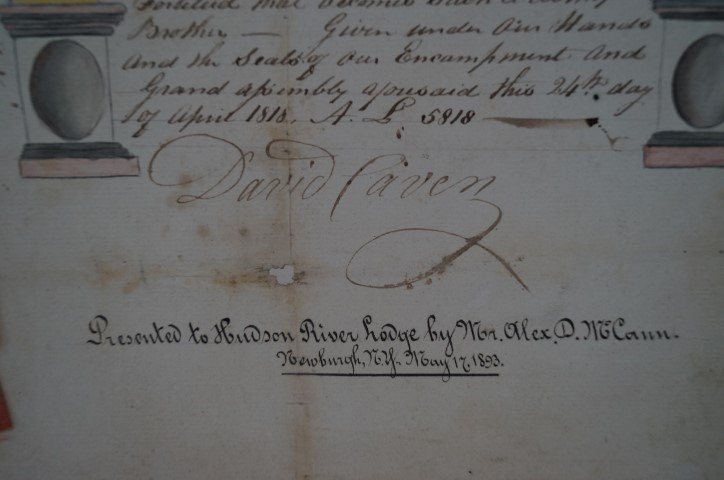 Fortitud that becomes such a worthy
Brother — Given under Our Hands
And the Seals of our Encampment and
Grand assembly aforesaid this 24th day
of April 1818. A. L. 5818
David Caven
Presented to Hudson River Lodge by Mr. Alex. D. McCann.
Newburgh, N.Y. May 17, 1893.